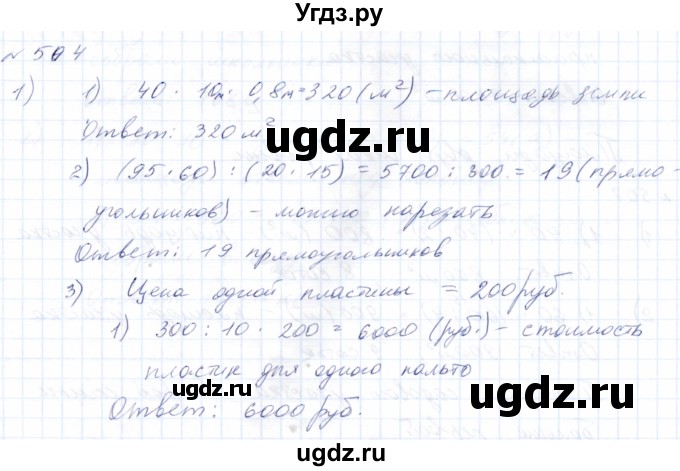 Угdz.ру
№ 504
1) 1) 40 · 10м · 0,8м = 320 (м²) – площадь земли
Ответ: 320 м²
ugdz.ru
2) (95 · 60) : (20 · 15) = 5700 : 300 = 19 (прямо-
угольников) – можно нарезать
Ответ: 19 прямоугольников
ugdz.ru
3) Цена одной пластины = 200 руб.
1) 300 : 10 · 200 = 6000 (руб.) – стоимость
пластик для одного пальто
ugdz.ru
Ответ: 6000 руб.
ugdz.ru
ugdz.ru